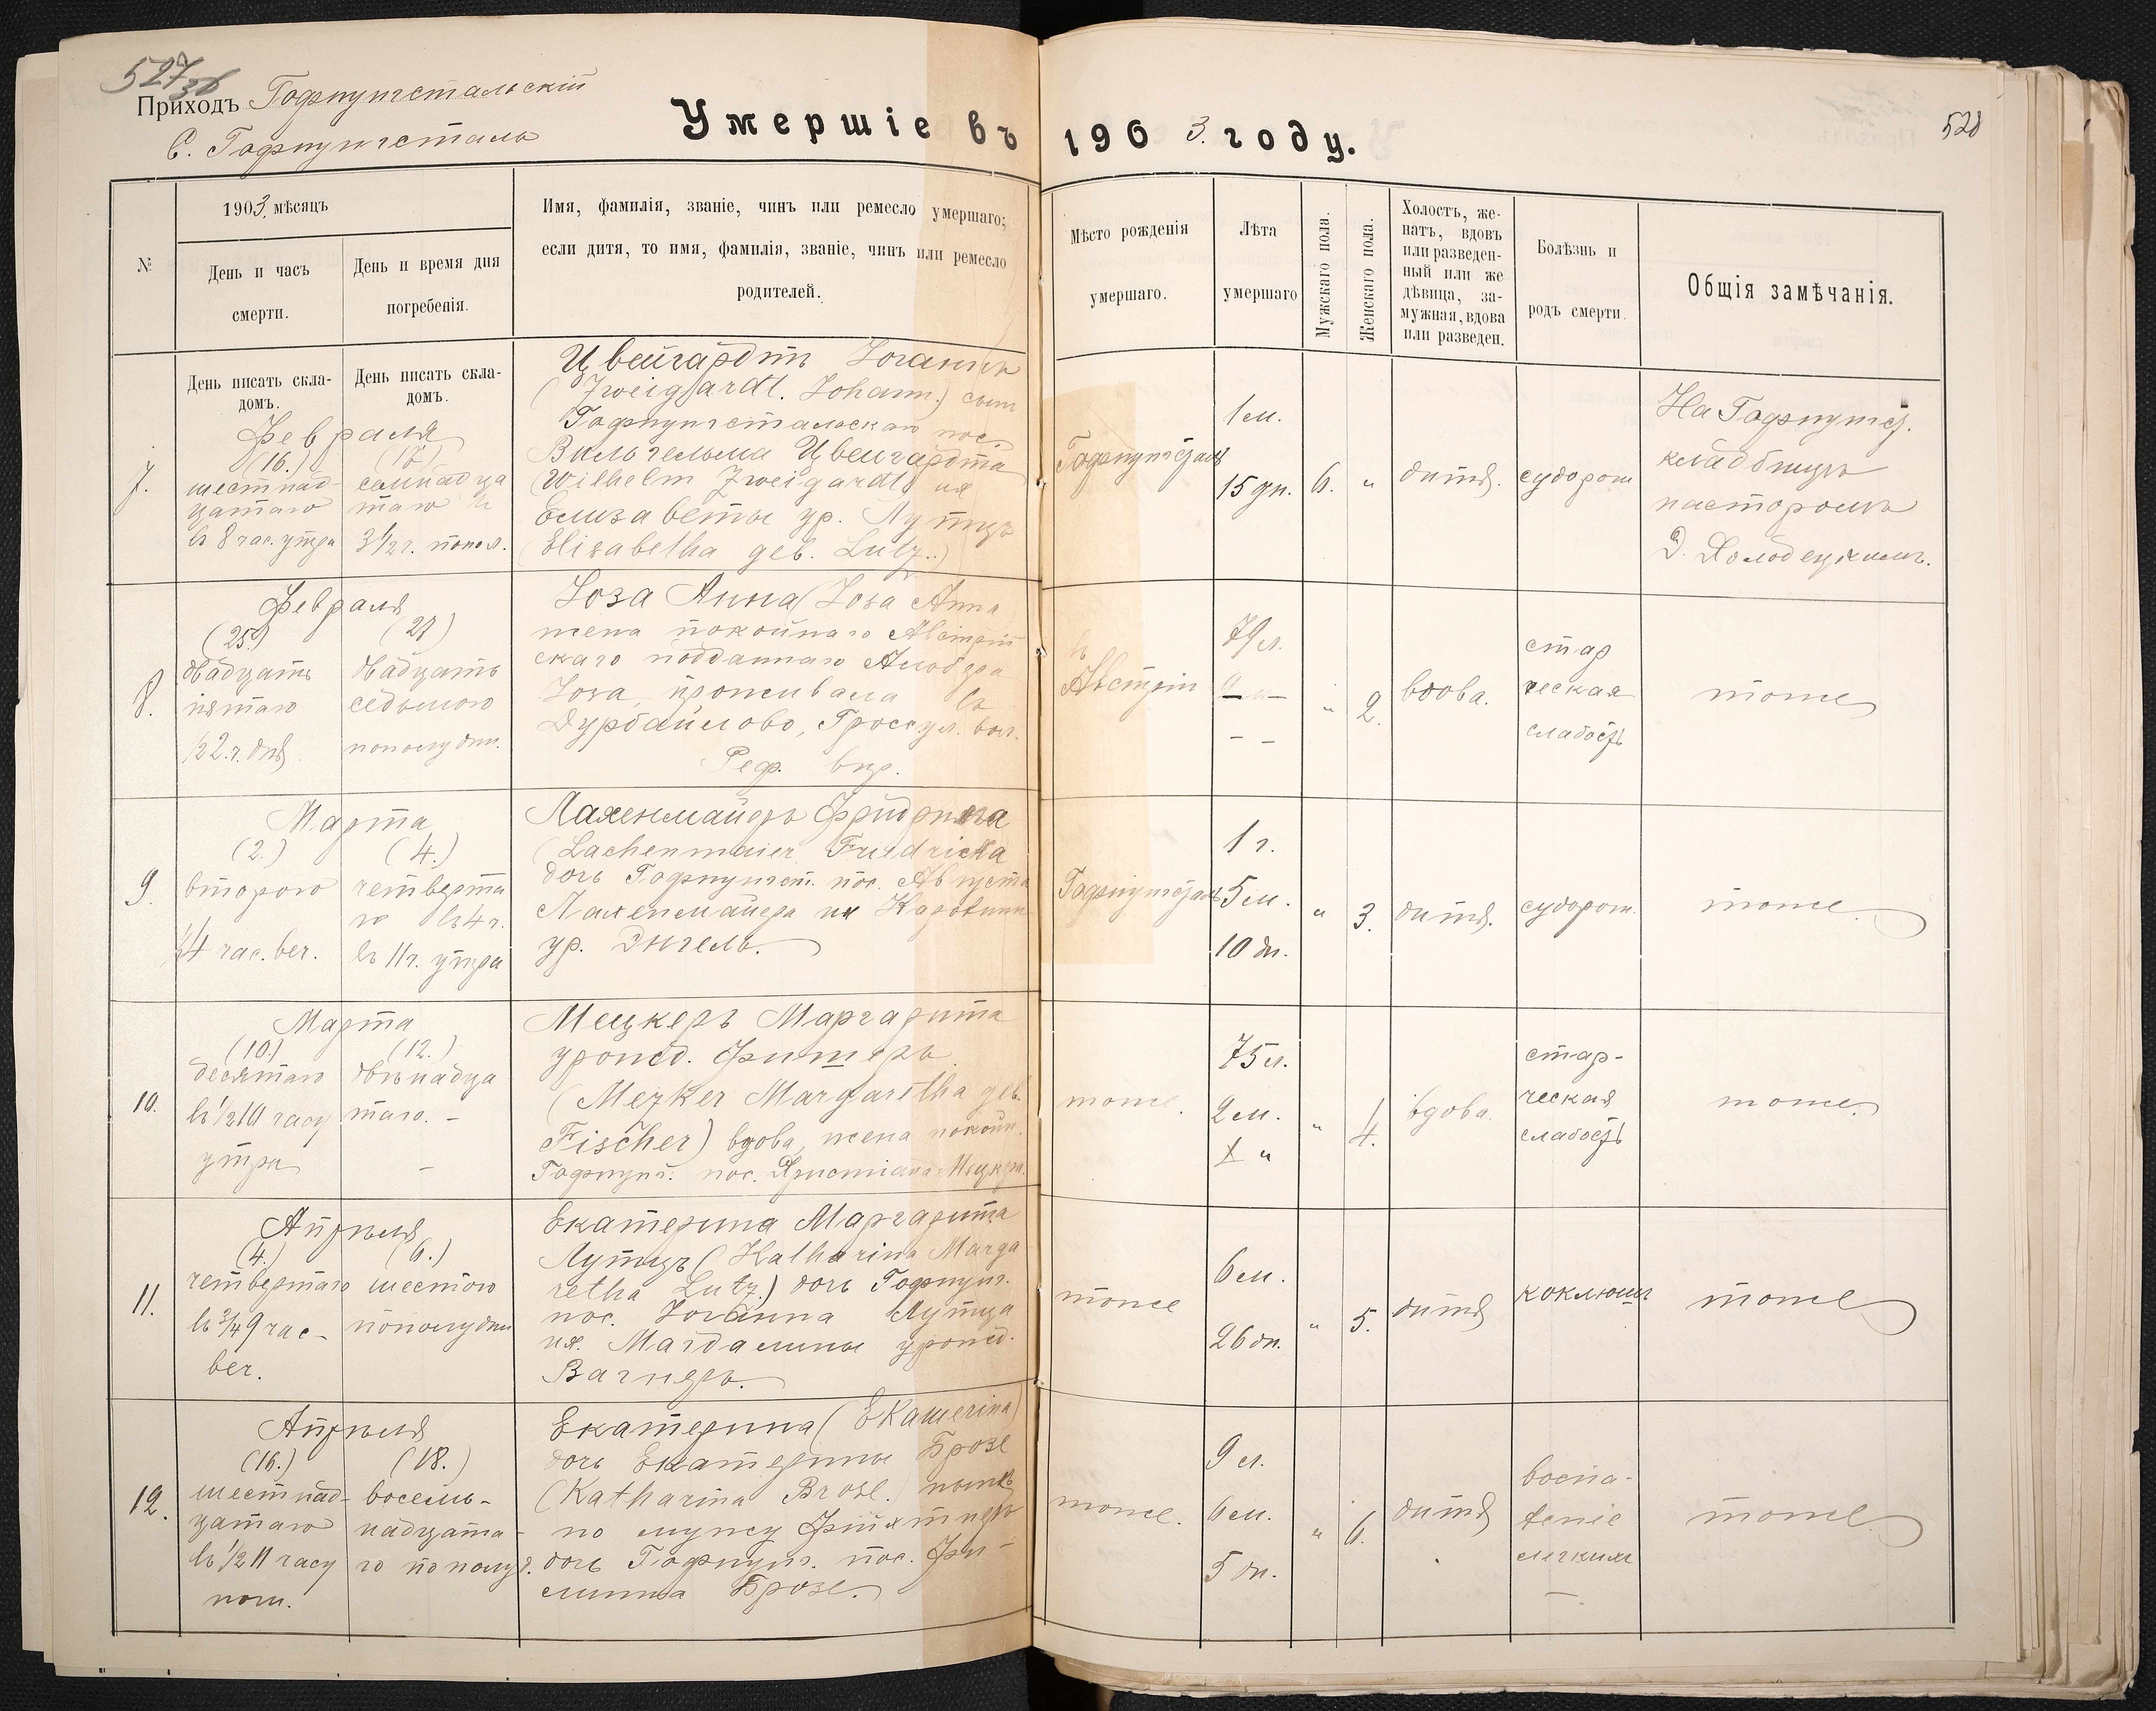 527
Приходъ Гофнунгстальскій
С. Гофнунгсталь
Умершіе въ 1903 году.
528
№
1903 мѣсяцъ
День и часъ смерти.
День и время дня погребенія.
Имя, фамилія, званіе, чинъ или ремесло умершаго;
если дитя, то имя, фамилія, званіе, чинъ или ремесло
родителей.
Мѣсто рожденія
умершаго.
Лѣта
умершаго
Мужскаго пола.
Женскаго пола.
Холостъ, же-
натъ, вдовъ
или разведен-
ный или же
дѣвица, за-
мужная, вдова
или разведен.
Болѣзнь и
родъ смерти.
Общія замѣчанія.
День писать скла-
домъ.
День писать скла-
домъ.
7.
Февраля
(16.)
шестнад-
цатаго
въ 8 час. утра
семнадца
таго
3½ ч. попол.
Цвейгардтъ Іоганнъ
(Zweighardt. Johann.) сынъ
Гофнунгстальскаго пос.
Вильгельма Цвейгардта
(Wilhelm Zweigardt) и
Елизаветы ур. Лутцъ
(Elisabetha geb. Lutz.)
Гофнунгсталь
1 м.
15 дн.
6.
"
дитя.
судорог
На Гофнунгст.
кладбищѣ
пасторомъ
Э. Холодецкимъ.
8.
Февраля
(25)
(27)
двадцать
пятаго
½2 ч. дня
двадцать
седьмого
пополудни.
Іоза Анна (Josa Anna
жена покойнаго Австрій
скаго подданнаго
Іоза, проживала въ
Дурбайлово, Гроссул. вол.
Реф. вѣр.
въ
Австріи
79 л.
— " —
— —
"
2.
вдова.
стар
ческая
слабость
тоже
9.
Марта
(2.)
(4.)
второго
½4 час. веч.
четверта
го
въ 11 ч. утра
Лахенмайеръ Фридрика
(Lachenmaier Friedricka
дочь Гофнунгст. пос. Августа
Лахенмайера и Каролины
ур. Энгель.
Гофнунгсталь
1 г.
5 м.
10 дн.
"
3.
дитя.
судорог.
тоже.
10.
Марта
(10.)
(12.)
десятаго
въ ½10 часу
утра
двѣнадца
таго. —
—
Мецкеръ Маргарита
урожд. Фишеръ
(Mezker Margaretha geb.
Fischer) вдова, жена покойн.
Гофнунг. пос. Христіана Мецкера.
тоже.
75 л.
2 м.
X "
"
4.
вдова.
стар-
ческая
слабость
тоже.
11.
Апрѣля
(4.)
(6.)
четвертаго
въ ¾9 час-
веч.
шестого
пополудни
Екатерина Маргарита
Лутцъ (Katharina Marga
retha Lutz.) дочь Гофнунг.
пос. Іоганна Лутца
и Магдалины урожд.
Вагнеръ.
тоже
6 м.
26 дн.
"
5.
дитя
коклюшъ
тоже
12.
Апрѣля
(16.)
(18.)
шестнад-
цатаго
въ ½11 часу
ночи.
восемь-
надцата-
го пополуд.
Екатерина (Екаterina)
дочь Екатерины Брозе
(Katharina Brose.) нынѣ
по мужу
дочь Гофнунг. пос. Фи-
липпа Брозе.
тоже.
9 л.
6 м.
5 дн.
"
6.
дитя
воспа-
леніе
легкихъ
—
тоже.